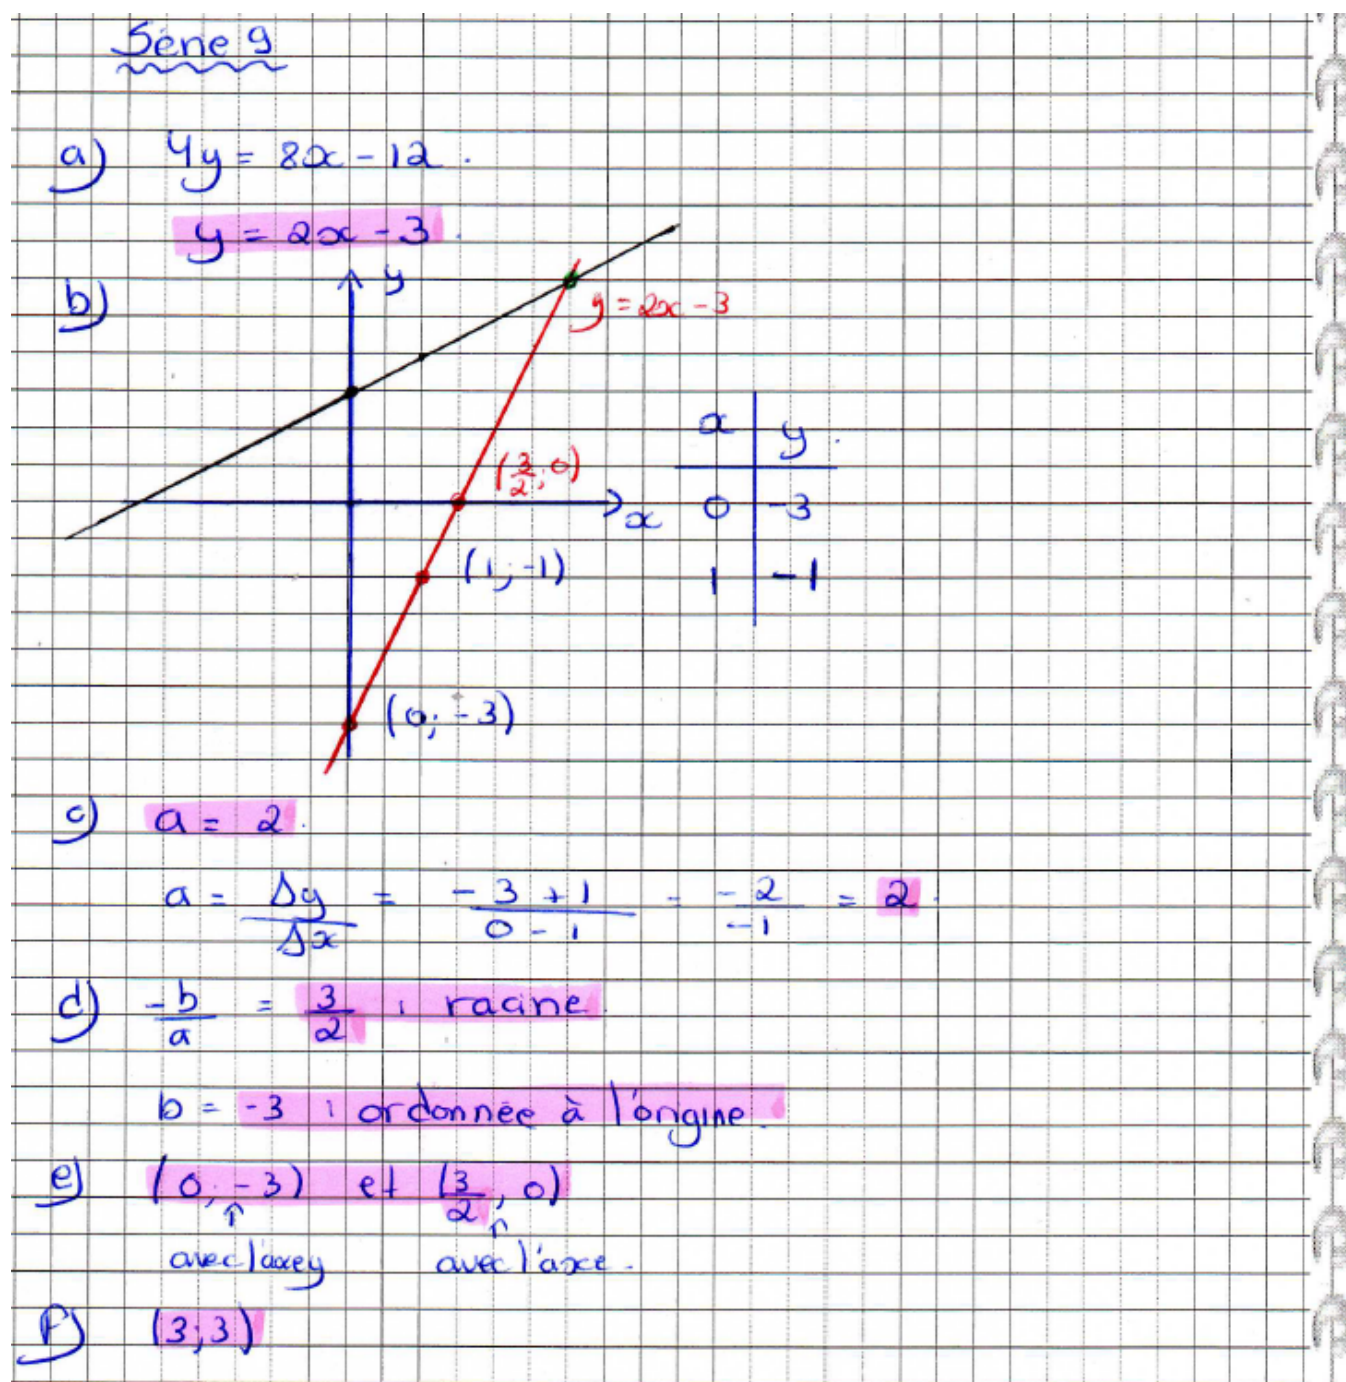 Série 9
a) 4y = 8x - 12.
y = 2x - 3.
b) y
y = 2x - 3
x y.
(3/2; 0)
x 0 -3
(1; -1) 1 -1
(0; -3)
c) a = 2.
a = Δy/Δx = (-3 + 1)/(0 - 1) = -2/-1 = 2.
d) -b/a = 3/2 : racine.
b = -3 : ordonnée à l'origine.
e) (0; -3) et (3/2; 0)
avec l'axe y avec l'axe.
f) (3; 3)